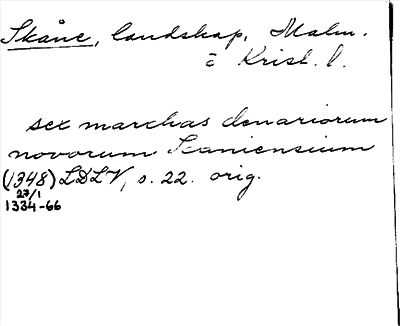 Skåne, landskap, Malm.
o Krist. l.
sex marchas denariorum
novorum Scaniensium
(1348) LDLV, s. 22. orig.
27/1
1334-66